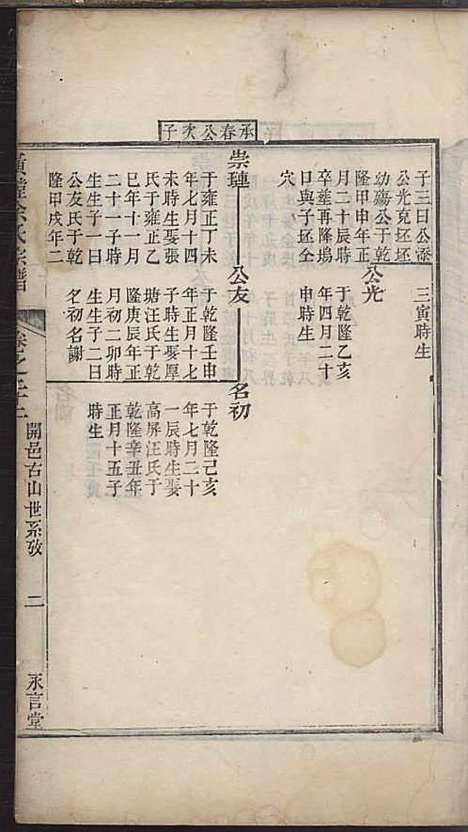 承春公次子
子三曰公添
公光克坯坯
幼殤公于乾
隆甲申年正
月二十辰時
卒葬再隆塢
日與子坯仝
穴
三寅時生
公光
于乾隆乙亥
年四月二十
申時生
崇璉
公友
名初
于雍正丁未
年七月十四
未時生娶張
氏于雍正乙
巳年十一月
二十一子時
生生子一曰
公友氏于乾
隆甲戌年二
于乾隆壬申
年正月十七
子時生娶厚
塘汪氏于乾
隆庚辰年正
月初二卯時
生生子二曰
名初名謝
于乾隆己亥
年七月二十
一辰時生娶
高屏汪氏于
乾隆辛丑年
正月十五子
時生
氏宗譜
卷之
開邑右山世系攷
二
永言堂